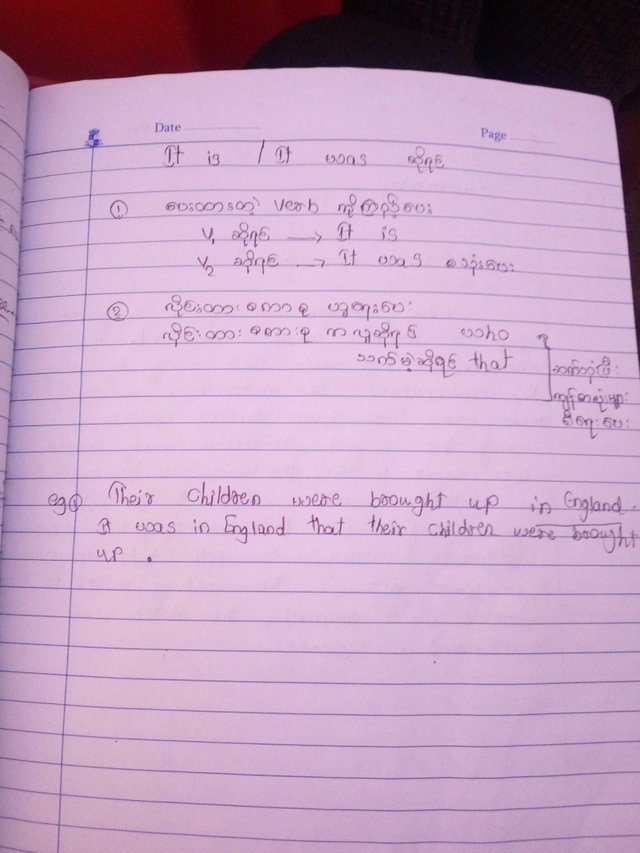 Date
Page
It is / It was ဆိုရင်
① ပေးထားတဲ့ Verb ကိုကြည့်ပေး
V1 ဆိုရင် → It is
V2 ဆိုရင် → It was စသုံးပေး
② လိုင်းတားစကားစု ယူရေးပေး
လိုင်းတားစကားစု ကလူဆိုရင် who
သက်မဲ့ဆိုရင် that
ဆက်သုံးပြီး
ကျန်စာလုံးများ
စီရေးပေး
eg ① Their children were brought up in England.
It was in England that their children were brought
up .